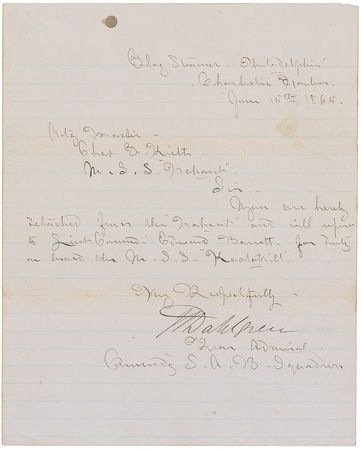 Flag Steamer "Philadelphia"
Charleston Harbor
June 15th 1865.
Actg Master
Chas E.
U. S. S. "Nahant"
Sir
You are hereby
detached from the "Nahant" and will report
to Lieut Comm. Edward Barrett for duty
on board the U. S. S. "Kaatskill".
Very Respectfully
JDahlgren
Rear Admiral
Commdg S. A. B. Squadron